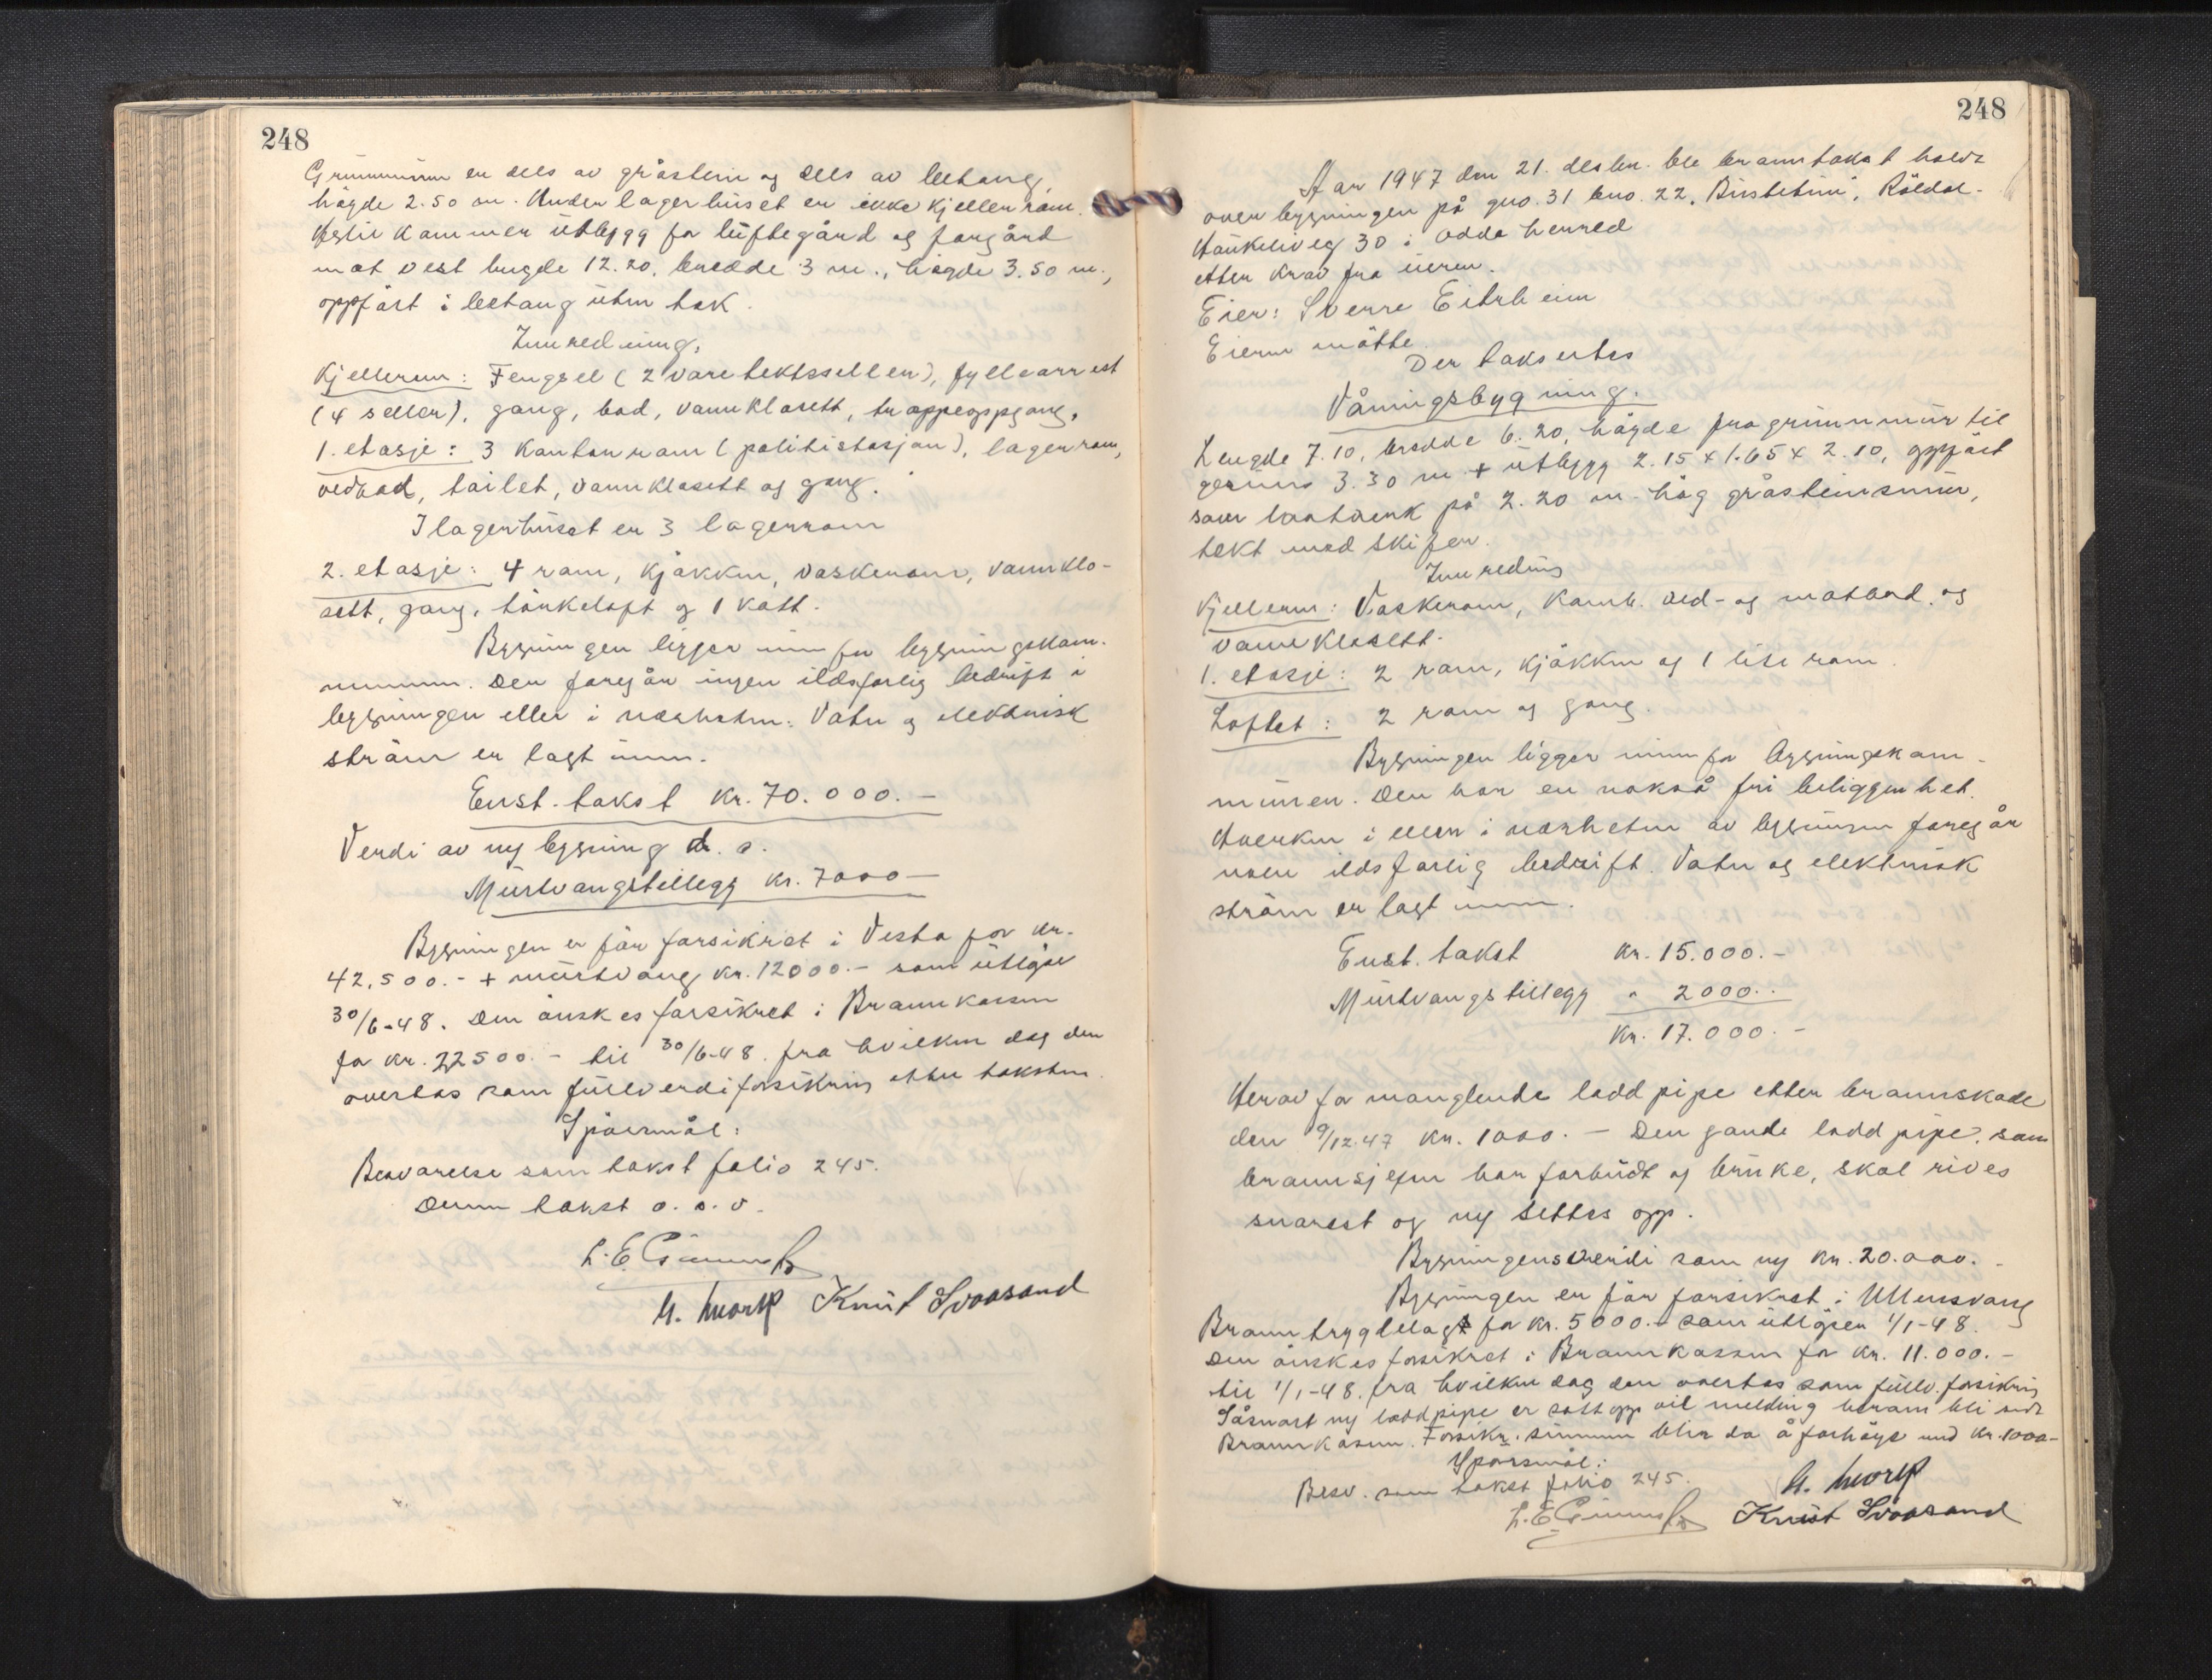 248
Grunnmuren er dels av gråstein og dels av betong,
høgde 2.50 m. Under lagerhuset er ikke kjellerrom.
Hertil kommer utbygg for luftegård og forgård
mot vest lengde 12.20, bredde 3 m., høgde 3.50 m.,
oppført i betong uten tak.
Innredning.
Kjelleren: Fengsel (2 varetektsseller), fyllearrest
(4 seller), gang, bad, vannklosett, trappeoppgang.
1. etasje: 3 kontorrom (politistasjon), lagerrom,
vedbod, toilet, vannklosett og gang.
I lagerhuset er 3 lagerrom
2. etasje: 4 rom, kjøkken, vaskerom, vannklo-
sett, gang, tørkeloft og 1 kott.
Bygningen ligger innenfor bygningskom-
munen. Der foregår ingen ildsfarlig bedrift i
bygningen eller i nærheten. Vatn og elektrisk
strøm er lagt inn.
Enst. takst Kr. 70.000.-
Verdi av ny bygning d. s.
Murtvangstillegg Kr. 7000-
Bygningen er før forsikret i Vesta for kr.
42.500.- + murtvang kr. 12000.- som utløper
30/6-48. Den ønskes forsikret i Brannkassen
for kr. 22500.- til 30/6-48. fra hvilken dag den
overtas som fullverdiforsikring etter taksten.
Spørsmål:
Besvarelse som takst folio 245.
Denne takst o. s. v.
L. E. Grimmsbø
H. Mork Knut Svoasand
248
Aar 1947 den 21. desbr. ble branntakst holdt
over bygningen på gno. 31 bno. 22, "Birkeheim", Røldal-
Haukeliveg 30 i Odda herred
etter krav fra eieren.
Eier: Sverre Eitrheim
Eieren møtte.
Der taksertes
Våningsbygning.
Lengde 7.10, bredde 6.20, høgde fra grunnmur til
gesims 3.30 m + utbygg 2.15 x 1.65 x 2.10, oppført
som bratverk på 2.20 m. høg gråsteinsmur,
tekt med skifer.
Innredning
Kjelleren: Vaskerom, komb. ved- og matbod. og
vannklosett.
1. etasje: 2 rom, kjøkken og 1 lite rom.
Loftet: 2 rom og gang.
Bygningen ligger innenfor bygningskom-
munen. Den har en nokså fri beliggenhet.
Hverken i eller i nærheten av bygningen foregår
noen ildsfarlig bedrift. Vatn og elektrisk
strøm er lagt inn.
Enst. takst kr. 15.000.-
Murtvangstillegg " 2000.-
Kr. 17.000.-
Herav for manglende lodd pipe etter brannskade
den 9/12-47 kr. 1000.- Den gamle lodd pipe, som
brannsjefen har forbudt og bruke, skal rives
snarest og ny settes opp.
Bygningens verdi som ny kr. 20.000.-
Bygningen er før forsikret i Ullensvang
Branntrygdelag for kr. 5000.- som utløper 1/1-48.
Den ønskes forsikret i Brannkassen for kr. 11.000.-
til 1/1-48. fra hvilken dag den overtas som fullv. forsikring
Såsnart ny loddpipe er satt opp vil melding herom bli sendt
Brannkassen. Forsikr. summen blir da å forhøye med kr. 1000-
Spørsmål:
Besv. som takst folio 245.
H. Mork
L. E. Grimmsbø Knut Svoasand